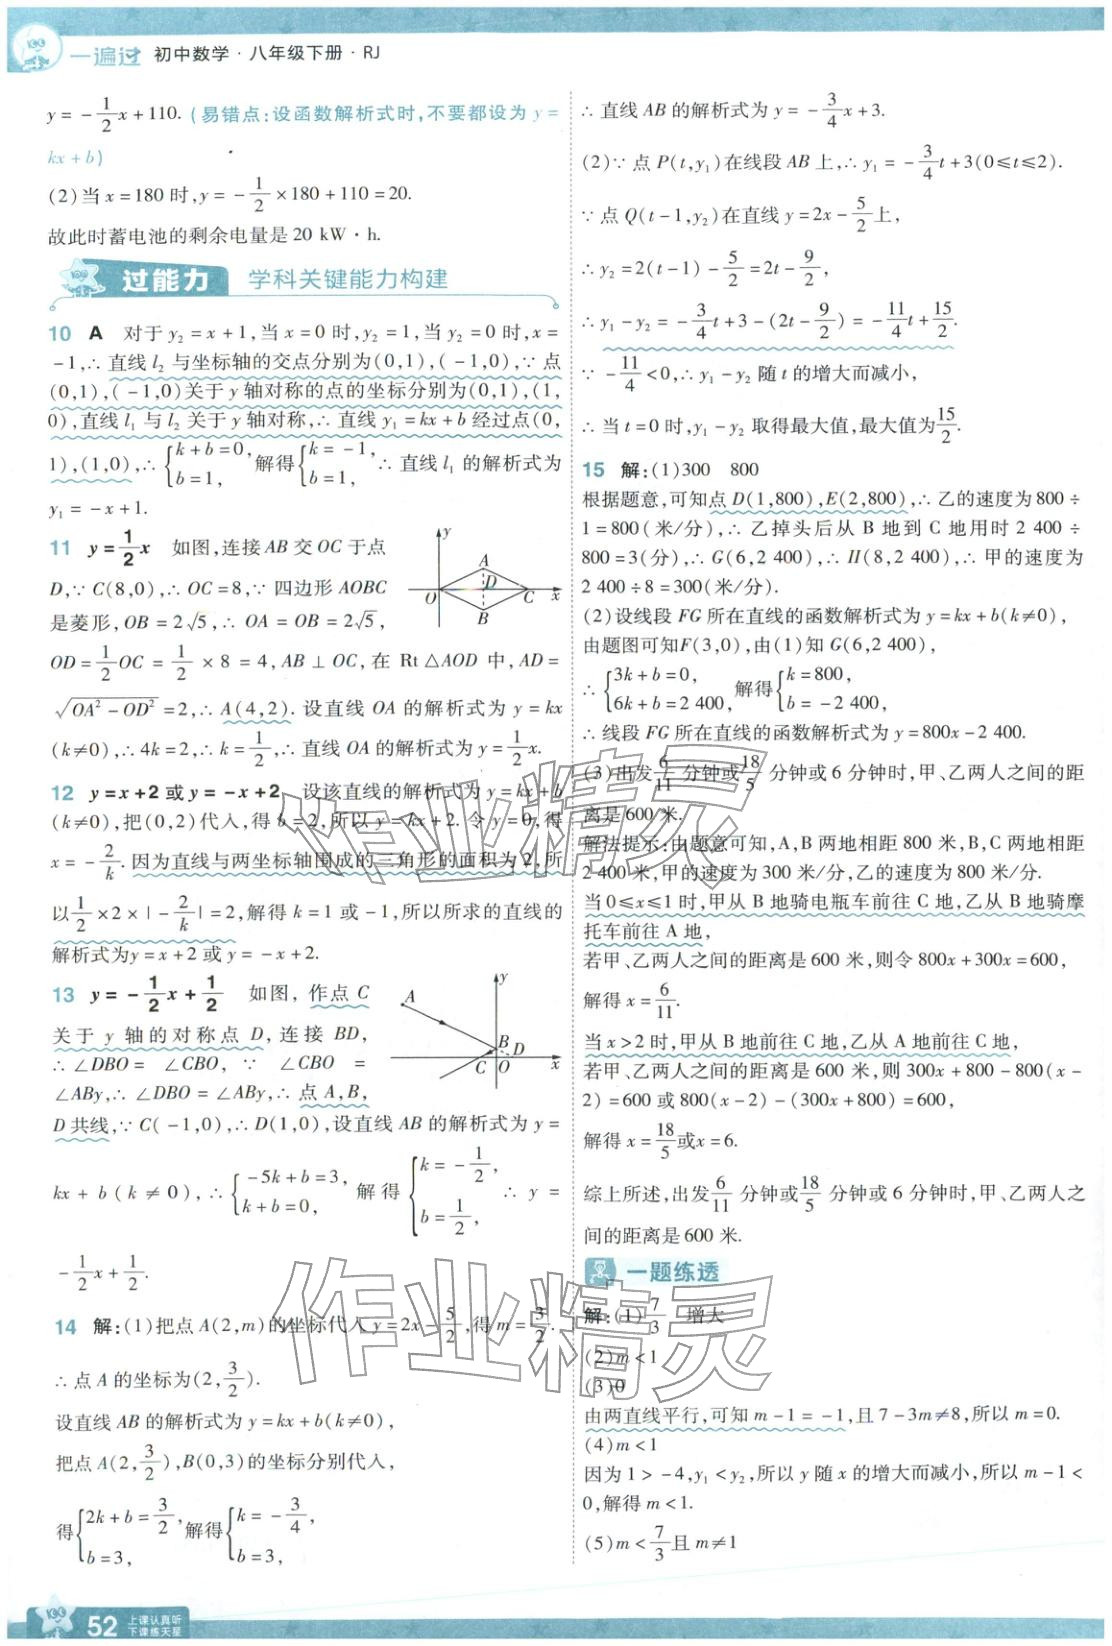 一遍过 初中数学·八年级下册·RJ
y=-1/2x+110.(易错点:设函数解析式时,不要都设为 y=
kx+b)
(2)当 x=180 时,y=-1/2×180+110=20.
故此时蓄电池的剩余电量是 20 kW·h.
过能力 学科关键能力构建
10 A 对于 y₂=x+1,当 x=0 时,y₂=1,当 y₂=0 时,x=
-1,∴直线 l₂ 与坐标轴的交点分别为(0,1),(-1,0),∵点
(0,1),(-1,0)关于 y 轴对称的点的坐标分别为(0,1),(1,
0),直线 l₁ 与 l₂ 关于 y 轴对称,∴直线 y₁=kx+b 经过点(0,
1),(1,0),∴{k+b=0, b=1, 解得{k=-1, b=1, ∴直线 l₁ 的解析式为
y₁=-x+1.
11 y=1/2x 如图,连接 AB 交 OC 于点
D,∵C(8,0),∴OC=8,∵四边形 AOBC
是菱形,OB=2√5,∴OA=OB=2√5,
OD=1/2OC=1/2×8=4,AB⊥OC,在 Rt△AOD 中,AD=
√(OA²-OD²)=2,∴A(4,2).设直线 OA 的解析式为 y=kx
(k≠0),∴4k=2,∴k=1/2,∴直线 OA 的解析式为 y=1/2x.
y A D O C x B
12 y=x+2 或 y=-x+2 设该直线的解析式为 y=kx+b
(k≠0),把(0,2)代入,得 b=2,所以 y=kx+2.令 y=0,得
x=-2/k.因为直线与两坐标轴围成的三角形的面积为 2,所
以1/2×2×|-2/k|=2,解得 k=1 或-1,所以所求的直线的
解析式为y=x+2 或 y=-x+2.
13 y=-1/2x+1/2 如图,作点 C
关于 y 轴的对称点 D,连接 BD,
∴∠DBO=∠CBO,∵∠CBO=
∠ABy,∴∠DBO=∠ABy,∴点 A,B,
D 共线,∵C(-1,0),∴D(1,0),设直线 AB 的解析式为 y=
kx+b(k≠0),∴{-5k+b=3, k+b=0, 解得{k=-1/2, b=1/2, ∴y=
-1/2x+1/2.
A y B D C O x
14 解:(1)把点 A(2,m)的坐标代入 y=2x-5/2,得 m=3/2.
∴点 A 的坐标为(2,3/2).
设直线 AB 的解析式为 y=kx+b(k≠0),
把点 A(2,3/2),B(0,3)的坐标分别代入,
得{2k+b=3/2, b=3, 解得{k=-3/4, b=3,
∴直线 AB 的解析式为 y=-3/4x+3.
(2)∵点 P(t,y₁)在线段 AB 上,∴y₁=-3/4t+3(0≤t≤2).
∵点 Q(t-1,y₂)在直线 y=2x-5/2上,
∴y₂=2(t-1)-5/2=2t-9/2,
∴y₁-y₂=-3/4t+3-(2t-9/2)=-11/4t+15/2.
∵-11/4<0,∴y₁-y₂ 随 t 的增大而减小,
∴当 t=0 时,y₁-y₂ 取得最大值,最大值为15/2.
15 解:(1)300 800
根据题意,可知点 D(1,800),E(2,800),∴乙的速度为 800÷
1=800(米/分),∴乙掉头后从 B 地到 C 地用时 2 400÷
800=3(分),∴G(6,2 400),∴H(8,2 400),∴甲的速度为
2 400÷8=300(米/分).
(2)设线段 FG 所在直线的函数解析式为 y=kx+b(k≠0),
由题图可知F(3,0),由(1)知 G(6,2 400),
∴{3k+b=0, 6k+b=2 400, 解得{k=800, b=-2 400,
∴线段 FG 所在直线的函数解析式为 y=800x-2 400.
(3)出发6/11分钟或18/5分钟或 6 分钟时,甲、乙两人之间的距
离是 600 米.
解法提示:由题意可知,A,B 两地相距 800 米,B,C 两地相距
2 400 米,甲的速度为 300 米/分,乙的速度为 800 米/分.
当 0≤x≤1 时,甲从 B 地骑电瓶车前往 C 地,乙从 B 地骑摩
托车前往 A 地,
若甲、乙两人之间的距离是 600 米,则令 800x+300x=600,
解得 x=6/11.
当 x>2 时,甲从 B 地前往 C 地,乙从 A 地前往 C 地,
若甲、乙两人之间的距离是 600 米,则 300x+800-800(x-
2)=600 或 800(x-2)-(300x+800)=600,
解得 x=18/5或x=6.
综上所述,出发6/11分钟或18/5分钟或 6 分钟时,甲、乙两人之
间的距离是 600 米.
一题练透
解:(1)7/3 增大
(2)m<1
(3)0
由两直线平行,可知 m-1=-1,且 7-3m≠8,所以 m=0.
(4)m<1
因为 1>-4,y₁<y₂,所以 y 随 x 的增大而减小,所以 m-1<
0,解得 m<1.
(5)m<7/3且 m≠1
作业精灵
作业精灵
52 上课认真听
下课练天星